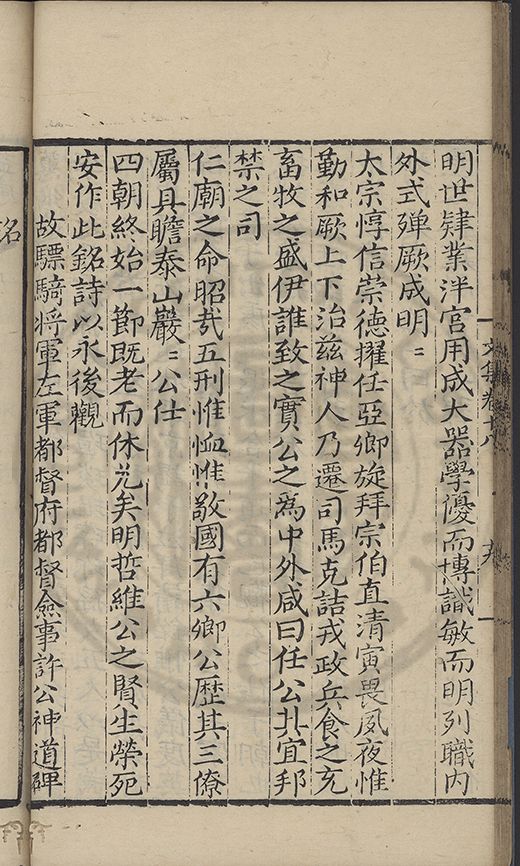 明世肄業泮宮用成大器學優而博識敏而明列職内
外式殫厥成明〻
太宗惇信崇德擢任亞卿旋拜宗伯直清寅畏夙夜惟
勤和厥上下治兹神人乃遷司馬克詰戎政兵食之充
畜牧之盛伊誰致之實公之為中外咸曰任公其宜邦
禁之司
仁廟之命昭哉五刑惟恤惟敬國有六卿公歷其三僚
屬具瞻泰山巖〻公仕
四朝終始一節既老而休允矣明哲維公之賢生榮死
安作此銘詩以永後觀
故驃騎將軍左軍都督府都督僉事許公神道碑
銘
文集卷十八
九